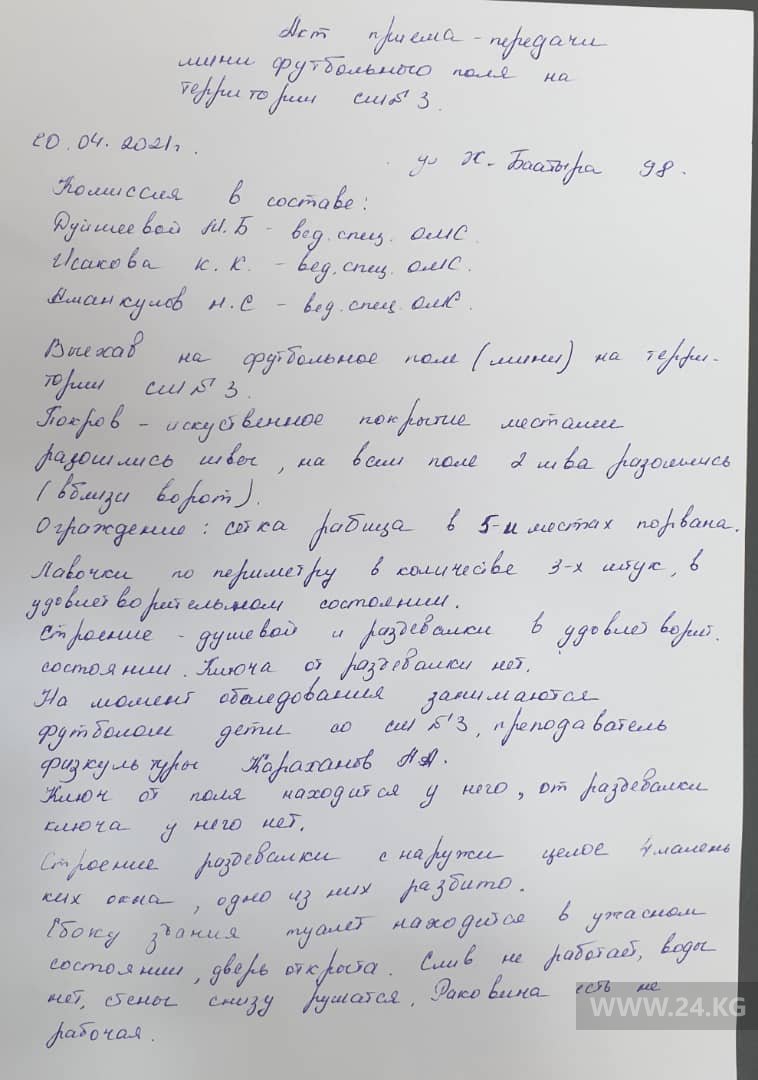 Акт приема-передачи
мини футбольного поля на
территории сш№3.
20.04.2021г.
ул Ж-Баатыра 98.
Комиссия в составе:
Дуйшеевой Ж.Б - вед.спец. ОМС.
Исакова К.К. - вед.спец. ОМС.
Аманкулов Н.С - вед.спец. ОМС.
Выехав на футбольное поле (мини) на терри-
тории сш№3.
Покров - искуственное покрытие местами
разошлись швы, на всем поле 2 шва разошлись
(вблизи ворот).
Ограждение: сетка рабица в 5-и местах порвана.
Лавочки по периметру в количестве 3-х штук, в
удовлетворительном состоянии.
Строение - душевой и раздевалки в удовлетворит.
состоянии. Ключа от раздевалки нет.
На момент обследования занимаются
футболом дети со сш№3, преподаватель
физкультуры Караханов А.А.
Ключ от поля находится у него, от раздевалки
ключа у него нет.
Строение раздевалки снаружи целое 4 малень
ких окна, одно из них разбито.
Сбоку здания туалет находится в ужасном
состоянии, дверь открыта. Слив не работает, воды
нет, стены снизу рушатся. Раковина есть не
рабочая.
WWW.24.KG